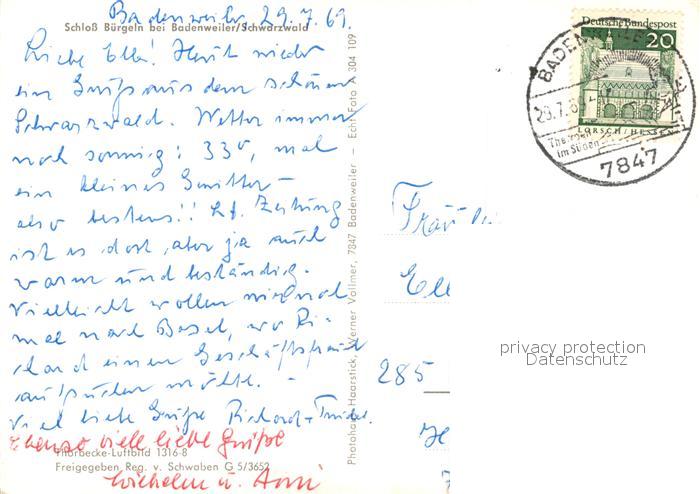 Badenweiler, 29.7.69.
Schloß Bürgeln bei Badenweiler/Schwarzwald
Liebe Ella! Heut wieder
ein Gruß aus dem schönen
Schwarzwald. Wetter immer
noch sonnig: 33°, mal
ein kleines Gewitter –
also bestens!! Lt. Zeitung
ist es dort aber ja auch
warm und beständig.
Vielleicht wollen wir noch
mal nach Basel, wo Ri-
chard einen Geschäftsfreund
aufsuchen möchte. –
Viel liebe Grüße Richard +
Ebenso viele liebe Grüße
Wilhelm u. Anni
Thorbecke-Luftbild 1316-8
Freigegeben Reg. v. Schwaben G 5/3652
Photohaus Haarstick, Werner Vollmer, 7847 Badenweiler – Echt Foto A 304 109
Deutsche Bundespost
20
LORSCH/HESSEN
BADENWEILER
29.7.69
im Süden
7847
Frau
Ell
285
privacy protection
Datenschutz